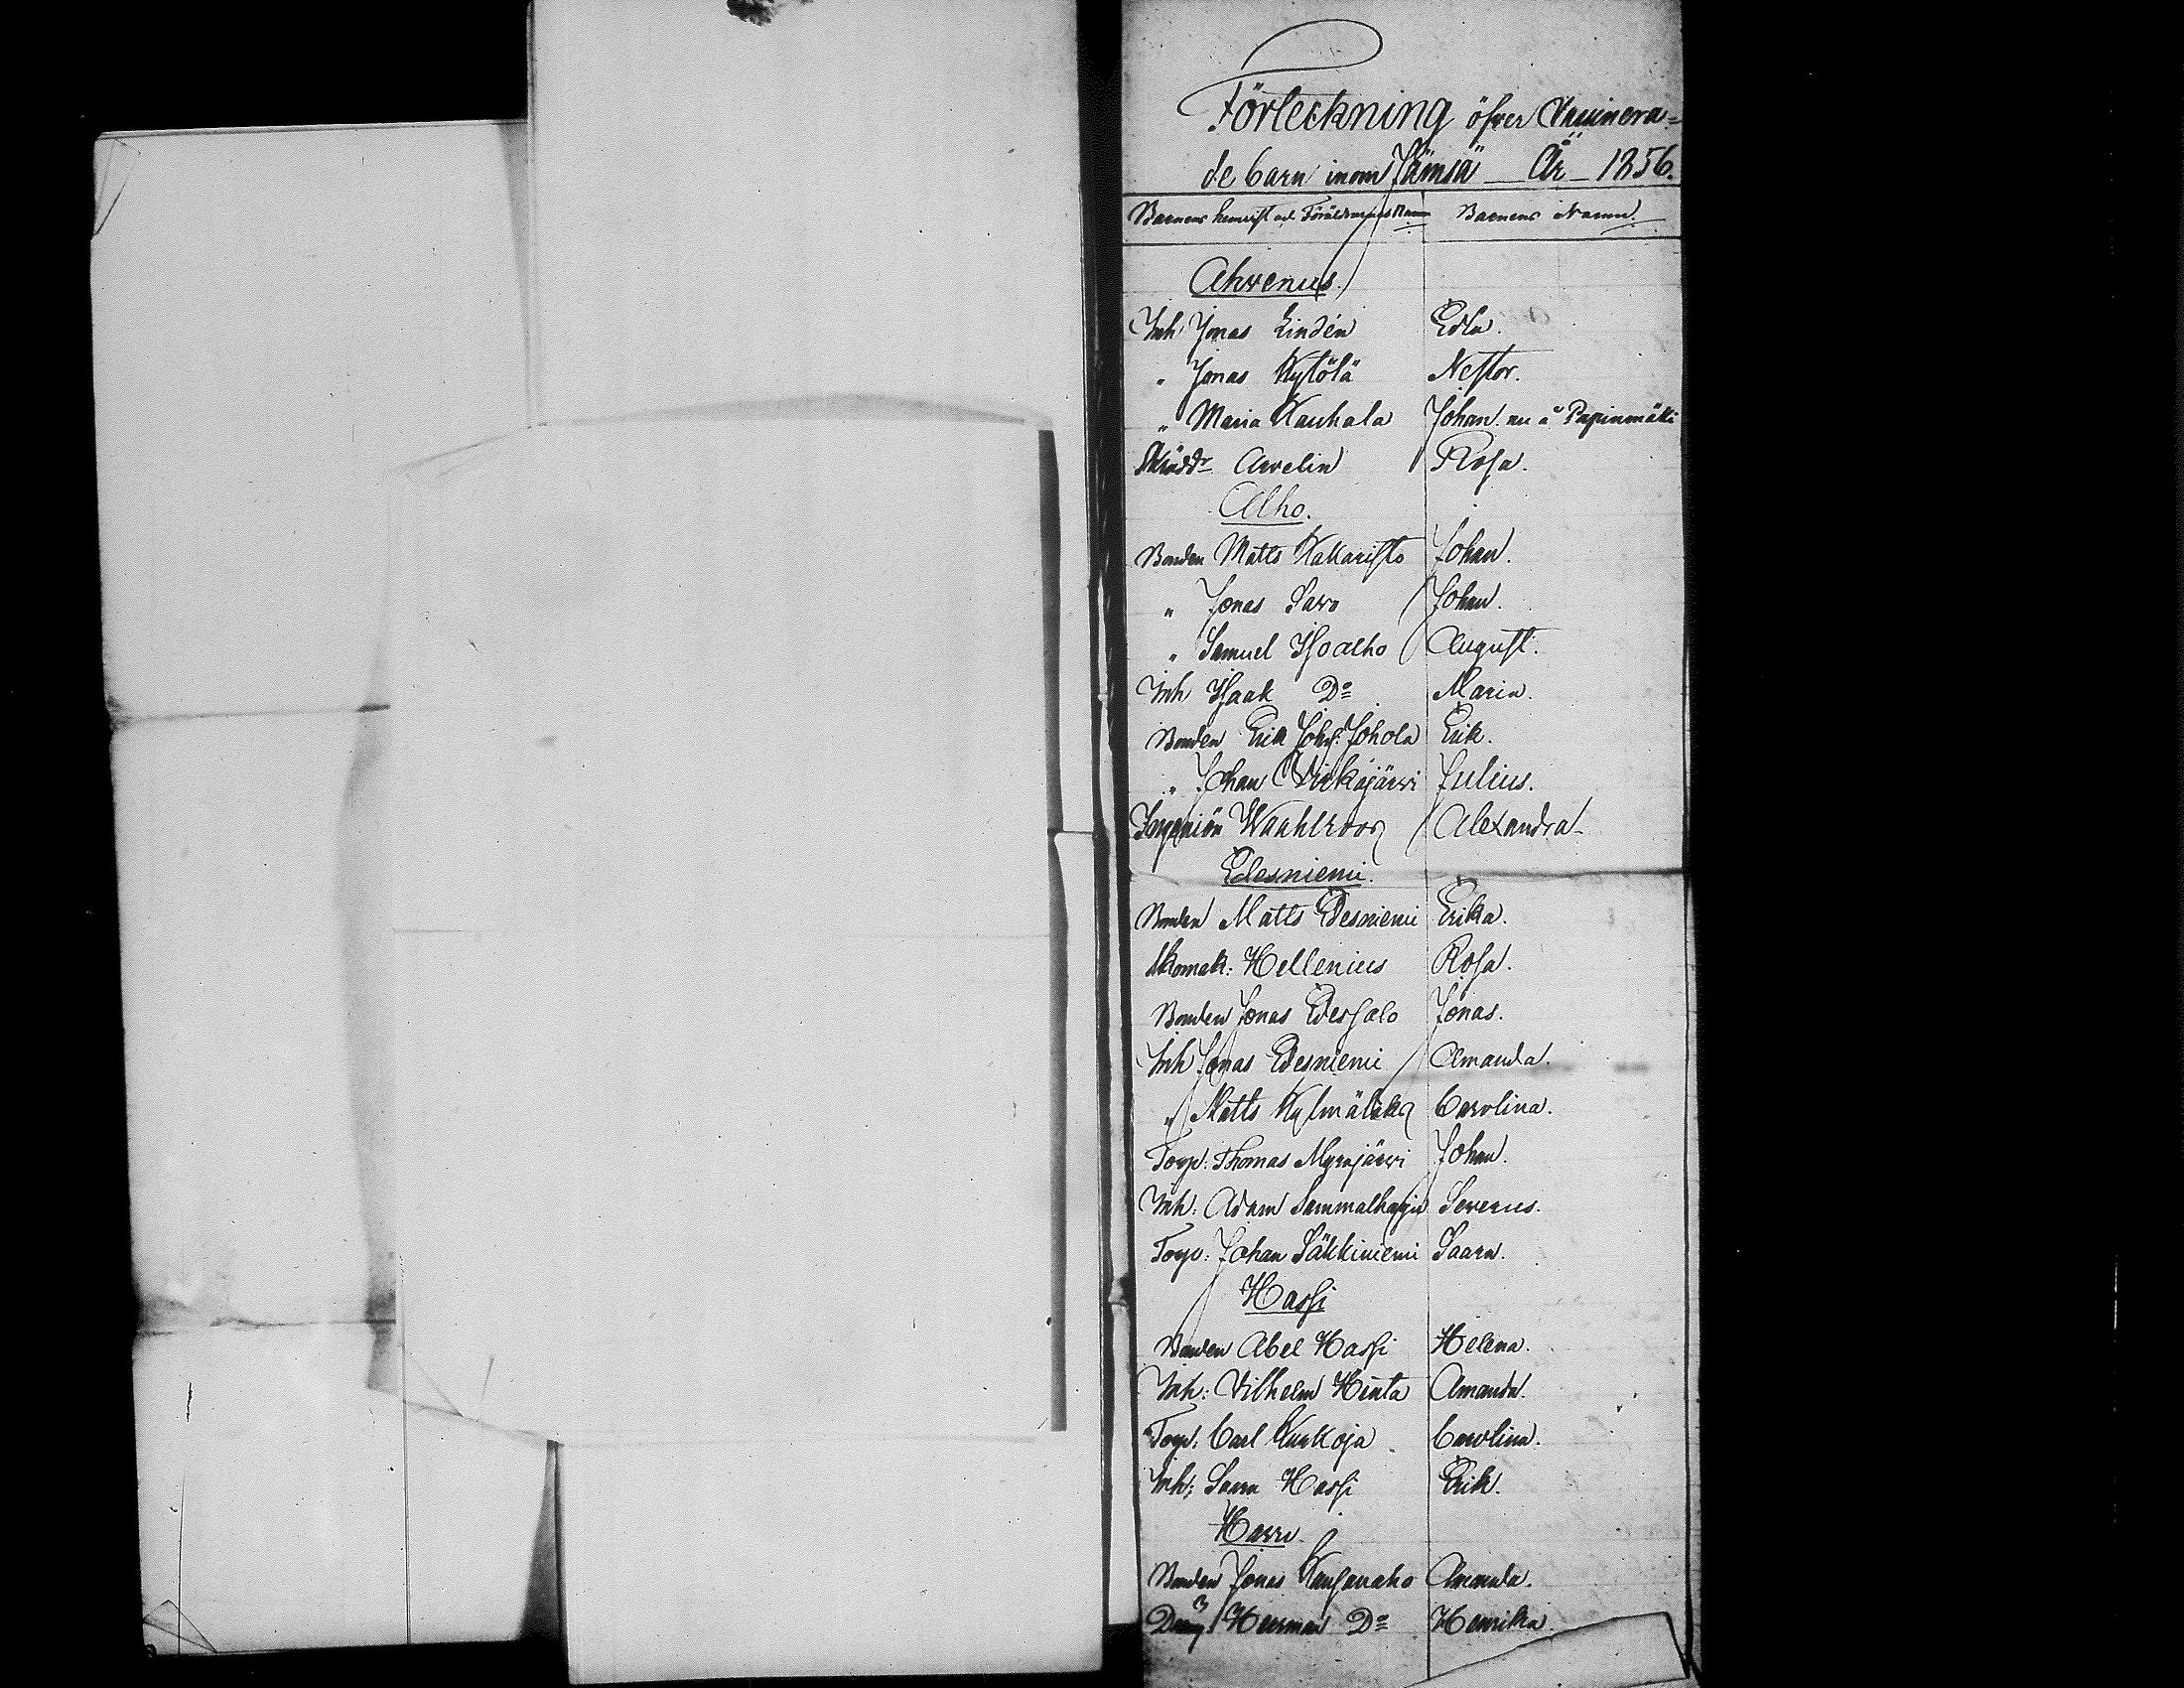 Förteckning öfver Vaccinera=
de barn inom Jämsä - År - 1856.
Barnens hemvist och Föräldrarnas Namn Barnens Namn.
Ahvenus.
Inh Jonas Lindén Edla.
" Jonas Kytölä Nestor.
" Maria Kauhala Johan nu å Papinmäki
Skrädd: Avelin Rosa.
Alho.
Bonden Matts Kakaristo Johan.
" Jonas Savo Johan.
" Samuel Isoalho August.
Inh Isaak Do Maria.
Bonden Erik Johs: Johola Erik.
" Johan Virkajärvi Julius.
Wahlroos Alexandra
Edesniemi.
Bonden Matts Edesniemi Erika.
Skomak: Hellenius Rosa.
Bonden Jonas Edessalo Jonas.
Inh Jonas Edesniemi Amanda.
" Matts Carolina.
Torp: Thomas Myräjärvi Johan.
Inh: Adam Sammalharju Severus.
Torp: Johan Säkkiniemi Saara.
Hassi
Bonden Abel Hassi Helena.
Inh: Vilhelm Hinta Amanda.
Torp: Carl Kurkoja Carolina.
Inh: Saara Hassi Erik.
Harre.
Bonden Jonas Kansanaho Amanda.
Dräng Herman Do Henrika.